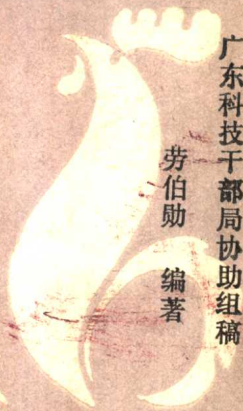 广东科技干部局协助组稿
劳伯勋 编著